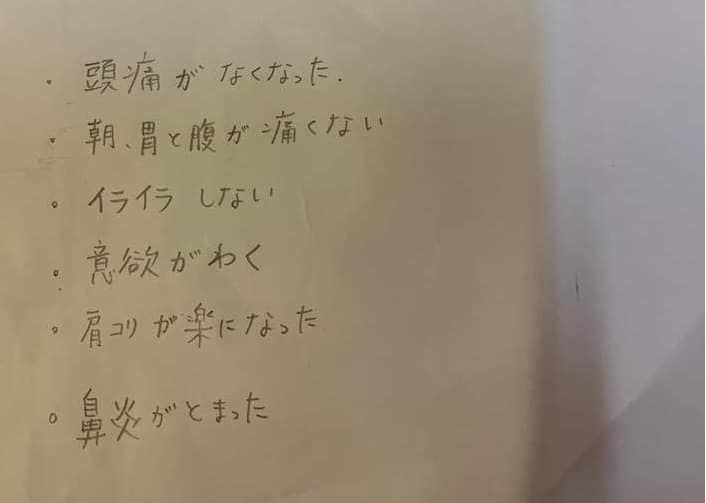 ・頭痛がなくなった.
・朝、胃と腹が痛くない
。イライラしない
。意欲がわく
。肩コリが楽になった
。鼻炎がとまった